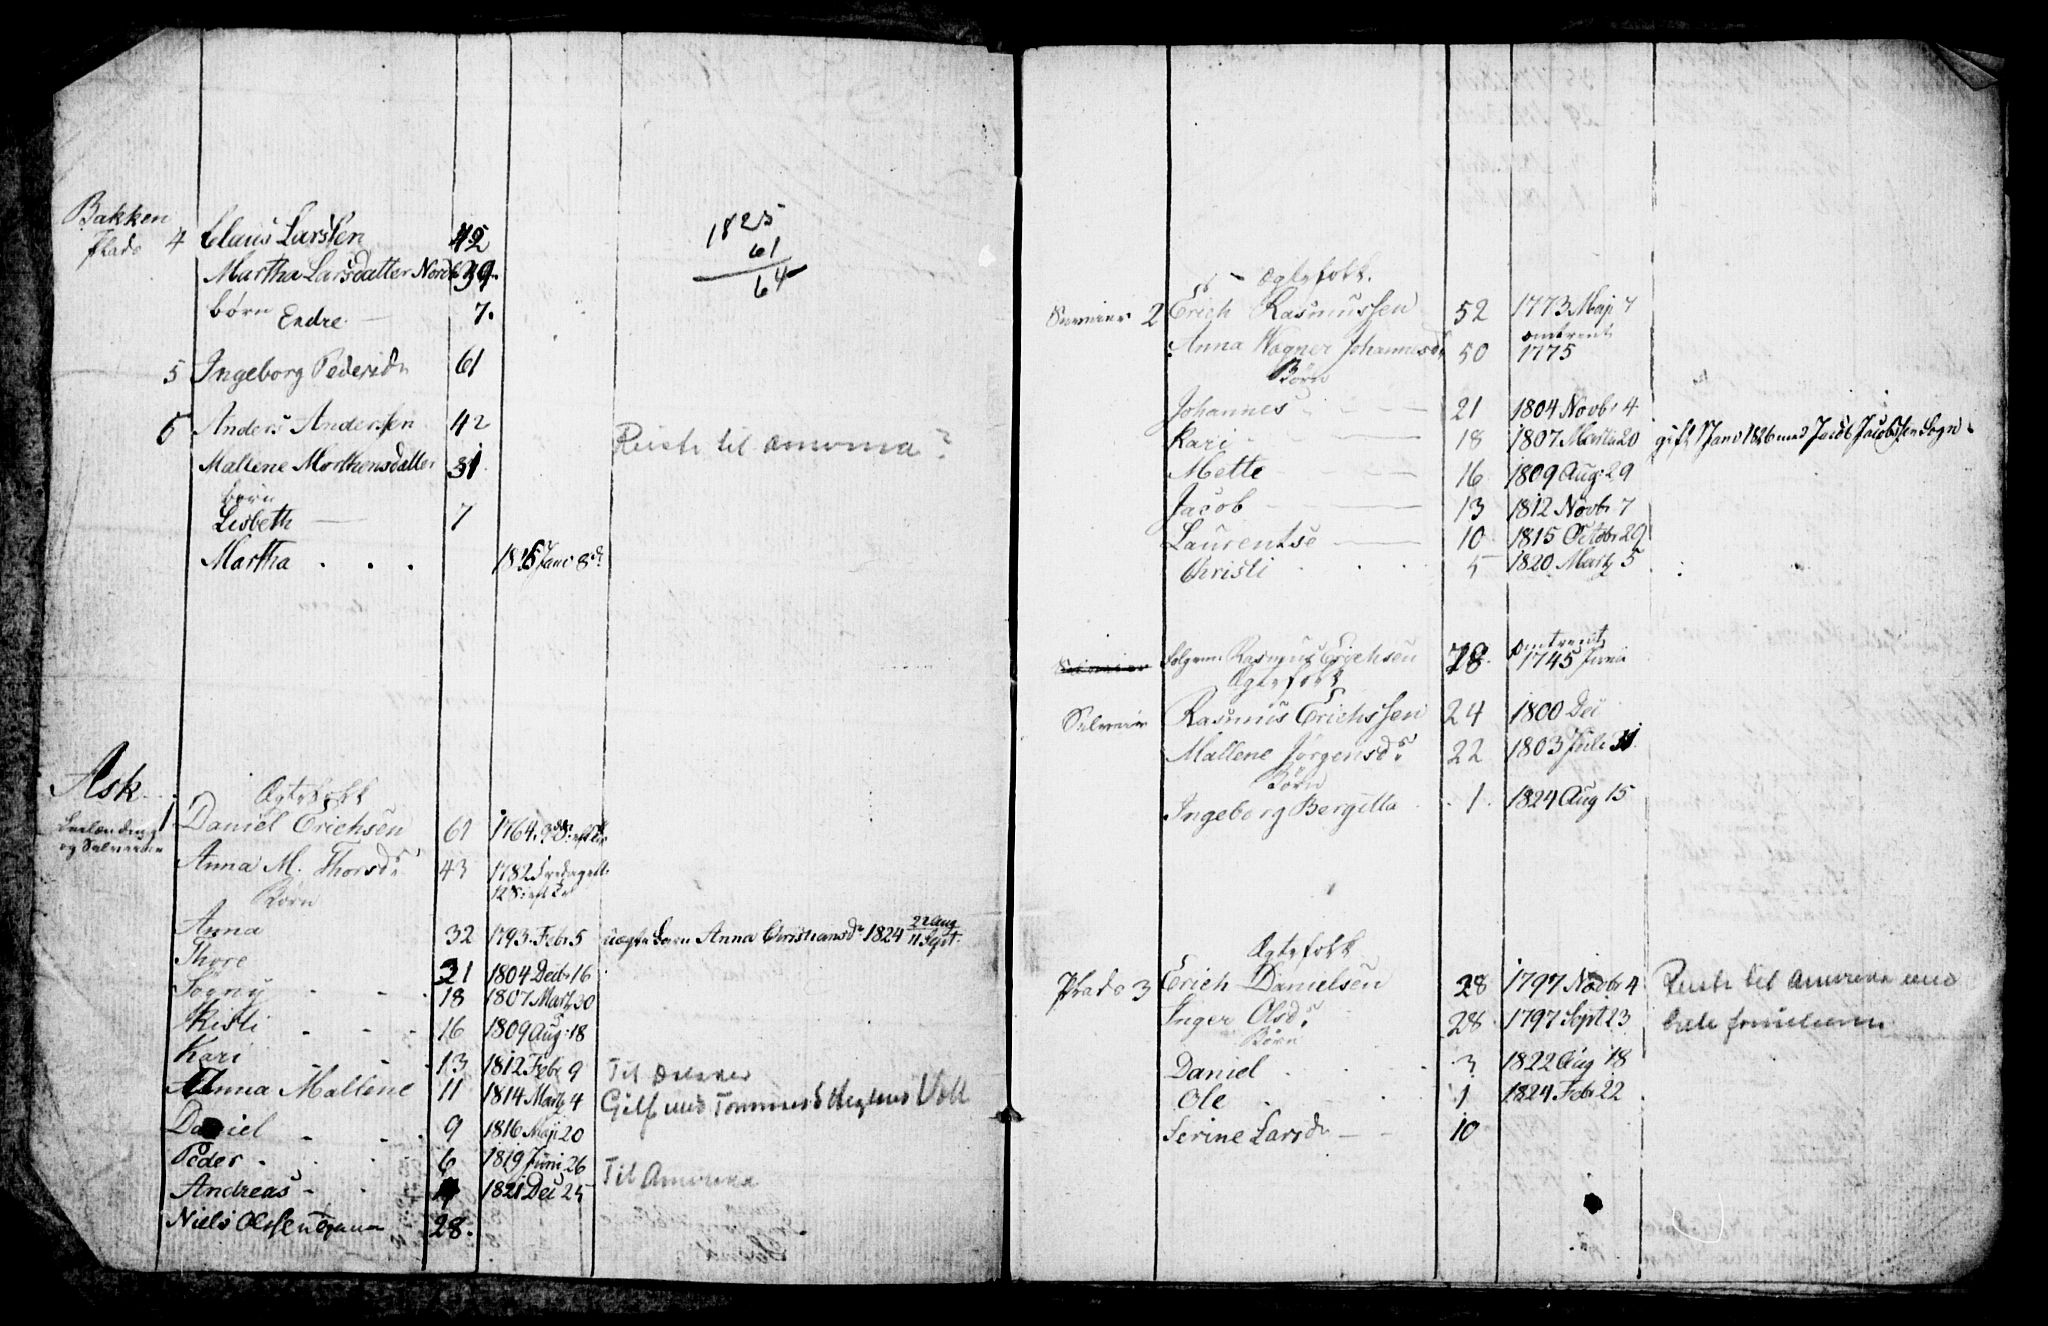 Bakken
Plads 4 Claus Larssen 42
Martha Larsdatter Nord 39
børn
Endre 7.
5 Ingeborg Pedersd 61
6 Anders Andersen 42
Mallene Morthensdatter 31
børn
Lisbeth 7
Martha . . . Janr 8d
1825
61
64
Reiste til America?
Ask
Ægtefolk
1 Daniel Erichsen 61 1764.
og
Anna M. Thorsdr 43 1782
Børn
Anna 32 1793. Febr 5 uægte Barn Anna Christiansdr 1824 22 Aug 11 Sept.
Thore 21 1804 Decbr 16
Sogny 18 1807 Martz 30
Kisti 16 1809 Aug. 18
Kari 13 1812 Febr 9 Til
Anna Mallene 11 1814 Martz 4 Gift med Voll
Daniel 9 1816 Maji 20
Peder 6 1819 Juni 26
Andreas 4 1821 Dec 25 Til America
Niels Olssen 28.
Ægtefolk.
2 Erich Rasmussen 52 1773 Maji 7
Anna Wagner Johannesdr 50 omtrent 1775
Børn
Johannes 21 1804 Novbr 4
Kari 18 1807 Martz 20 gift Janr 1826 med Jacob Jacobssen Sogn
Mette 16 1809 Aug. 29
Jacob 13 1812 Novbr 7
Laurentse 10 1815 Octobr 29
Christi 5 1820 Martz 5
Rasmus Erichsen 78. omtrent 1745
Ægtefolk
Rasmus Erichssen 24 1800 Dec
Mallene Jørgensdr 22 1803 Juli 31
Børn
Ingeborg Bergitta 1. 1824 Aug 15
Ægtefolk
Plads 3 Erich Danielsen 28 1797 Novbr 4 Reiste til America med
Inger Olsdr 28 1797 Sept 23 hele familien
Børn
Daniel 3 1822 Aug 18
Ole 1 1824 Febr 22
Serine Larsdr 10